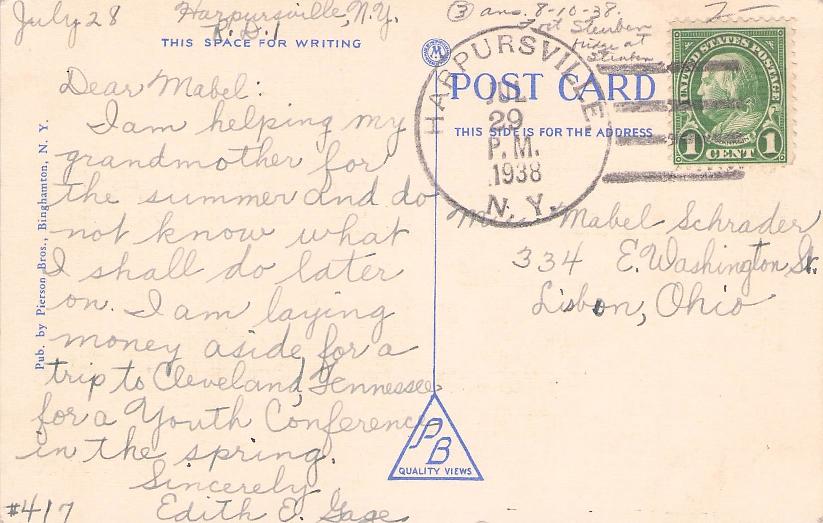 July 28 Harpursville, N.Y.
R.D.1
THIS SPACE FOR WRITING
Dear Mabel:
I am helping my
grandmother for
the summer and do
not know what
I shall do later
on. I am laying
money aside for a
trip to Cleveland, Tennessee
for a Youth Conference
in the spring.
Sincerely
Edith E. Gage
#417
Pub. by Pierson Bros., Binghamton, N. Y.
③ ans. 8-10-38.
Fort Steuben
bridge at
M
POST CARD
THIS SIDE IS FOR THE ADDRESS
HARPURSVILLE
JUL
29
P.M.
1938
N. Y.
UNITED STATES POSTAGE
1 CENT 1
Mabel Schrader
334 E. Washington St.
Lisbon, Ohio
PB
QUALITY VIEWS